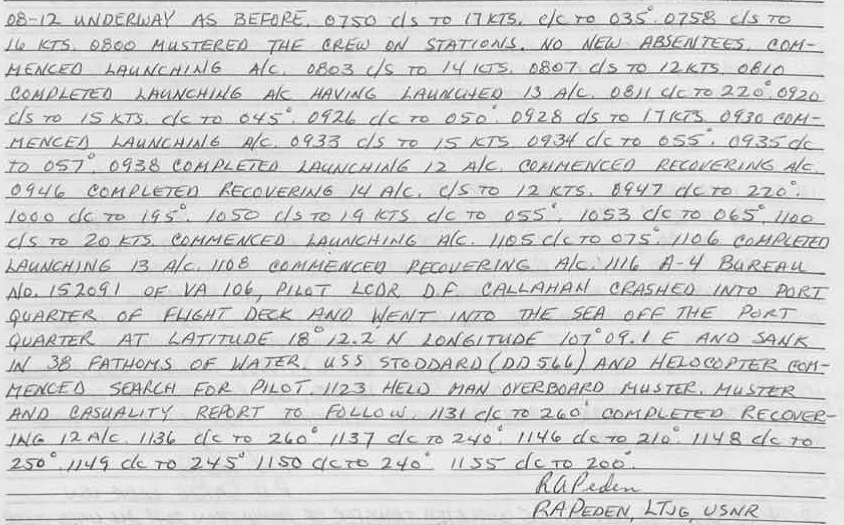 08-12 UNDERWAY AS BEFORE. 0750 c/s TO 17 KTS. c/c TO 035°. 0758 c/s TO
16 KTS. 0800 MUSTERED THE CREW ON STATIONS. NO NEW ABSENTEES. COM-
MENCED LAUNCHING A/C. 0803 c/s TO 14 KTS. 0807 c/s TO 12 KTS. 0810
COMPLETED LAUNCHING A/C HAVING LAUNCHED 13 A/C. 0811 c/c TO 220°. 0920
c/s TO 15 KTS. c/c TO 045°. 0926 c/c TO 050°. 0928 c/s TO 17 KTS. 0930 COM-
MENCED LAUNCHING A/C. 0933 c/s TO 15 KTS 0934 c/c TO 055°. 0935 c/c
TO 057°. 0938 COMPLETED LAUNCHING 12 A/C. COMMENCED RECOVERING A/C.
0946 COMPLETED RECOVERING 14 A/C. c/s TO 12 KTS. 0947 c/c TO 220°.
1000 c/c TO 195°. 1050 c/s TO 19 KTS c/c TO 055°. 1053 c/c TO 065°. 1100
c/s TO 20 KTS. COMMENCED LAUNCHING A/C. 1105 c/c TO 075°. 1106 COMPLETED
LAUNCHING 13 A/C. 1108 COMMENCED RECOVERING A/C. 1116 A-4 BUREAU
No. 152091 OF VA 106, PILOT LCDR D.F. CALLAHAN CRASHED INTO PORT
QUARTER OF FLIGHT DECK AND WENT INTO THE SEA OFF THE PORT
QUARTER AT LATITUDE 18° 12.2 N LONGITUDE 107° 09.1 E AND SANK
IN 38 FATHOMS OF WATER. USS STODDARD (DD 566) AND HELOCOPTER COM-
MENCED SEARCH FOR PILOT. 1123 HELD MAN OVERBOARD MUSTER. MUSTER
AND CASUALITY REPORT TO FOLLOW. 1131 c/c TO 260° COMPLETED RECOVER-
ING 12 A/C. 1136 c/c TO 260° 1137 c/c TO 240°. 1146 c/c TO 210°. 1148 c/c TO
250°. 1149 c/c TO 245° 1150 c/c TO 240°. 1155 c/c TO 200°.
RAPeden
R.A. PEDEN, LTJG, USNR